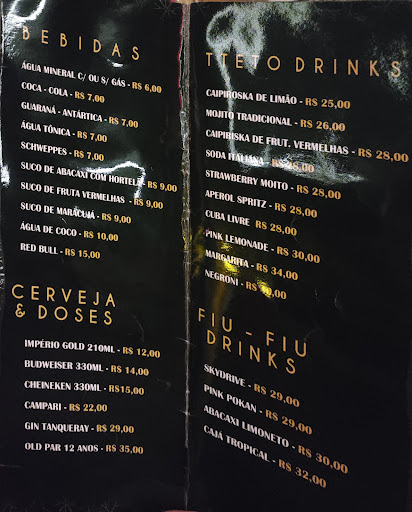 BEBIDAS
ÁGUA MINERAL C/ OU S/ GÁS - R$ 6,00
COCA - COLA - R$ 7,00
GUARANÁ - ANTÁRTICA - R$ 7,00
ÁGUA TÔNICA - R$ 7,00
SCHWEPPES - R$ 7,00
SUCO DE ABACAXI COM HORTELÃ - R$ 9,00
SUCO DE FRUTA VERMELHAS - R$ 9,00
SUCO DE MARACUJÁ - R$ 9,00
ÁGUA DE COCO - R$ 10,00
RED BULL - R$ 15,00
CERVEJA
& DOSES
IMPÉRIO GOLD 210ML - R$ 12,00
BUDWEISER 330ML - R$ 14,00
CHEINEKEN 330ML - R$15,00
CAMPARI - R$ 22,00
GIN TANQUERAY - R$ 29,00
OLD PAR 12 ANOS - R$ 35,00
TTETO DRINKS
CAIPIROSKA DE LIMÃO - R$ 25,00
MOJITO TRADICIONAL - R$ 26,00
CAIPIRISKA DE FRUT. VERMELHAS - R$ 28,00
SODA ITALIANA - R$ 28,00
STRAWBERRY MOITO - R$ 28,00
APEROL SPRITZ - R$ 28,00
CUBA LIVRE R$ 28,00
PINK LEMONADE - R$ 30,00
MARGARITA - R$ 34,00
NEGRONI - R$
FIU - FIU
DRINKS
SKYDRIVE - R$ 29,00
PINK POKAN - R$ 29,00
ABACAXI LIMONETO - R$ 30,00
CAJÁ TROPICAL - R$ 32,00